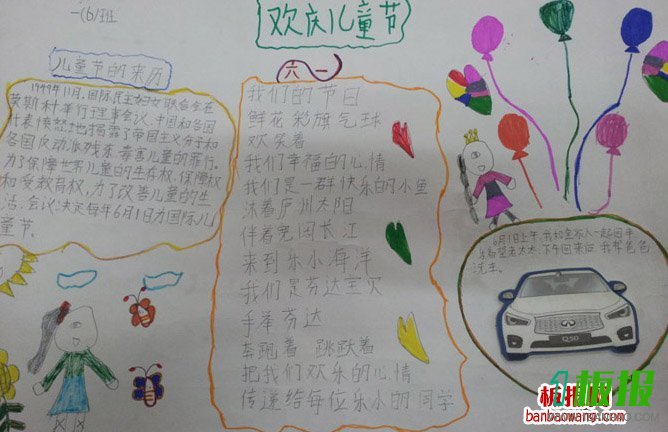 一(6)班
欢庆儿童节
儿童节的来历
1949年11月,国际民主妇女联合会在
莫斯科举行理事会议,中国和各国
代表愤怒地揭露了帝国主义分子和
各国反动派残杀、毒害儿童的罪行。
为了保障世界儿童的生存权、保障权
和受教育权,为了改善儿童的生
活,会议决定每年6月1日为国际儿
童节。
六一
我们的节日
鲜花 彩旗 气球
欢笑着
我们幸福的心情
我们是一群快乐的小鱼
沐着庐州太阳
伴着 长江
来到乐小海洋
我们是芬达
手举芬达
奔跑着 跳跃着
把我们欢乐的心情
传递给每位乐小的同学
6月1日上午,我和家人一起回
看望老太太,下午回来后,我帮爸爸
洗车。
Q50
板报
板报网
banbaowang.com